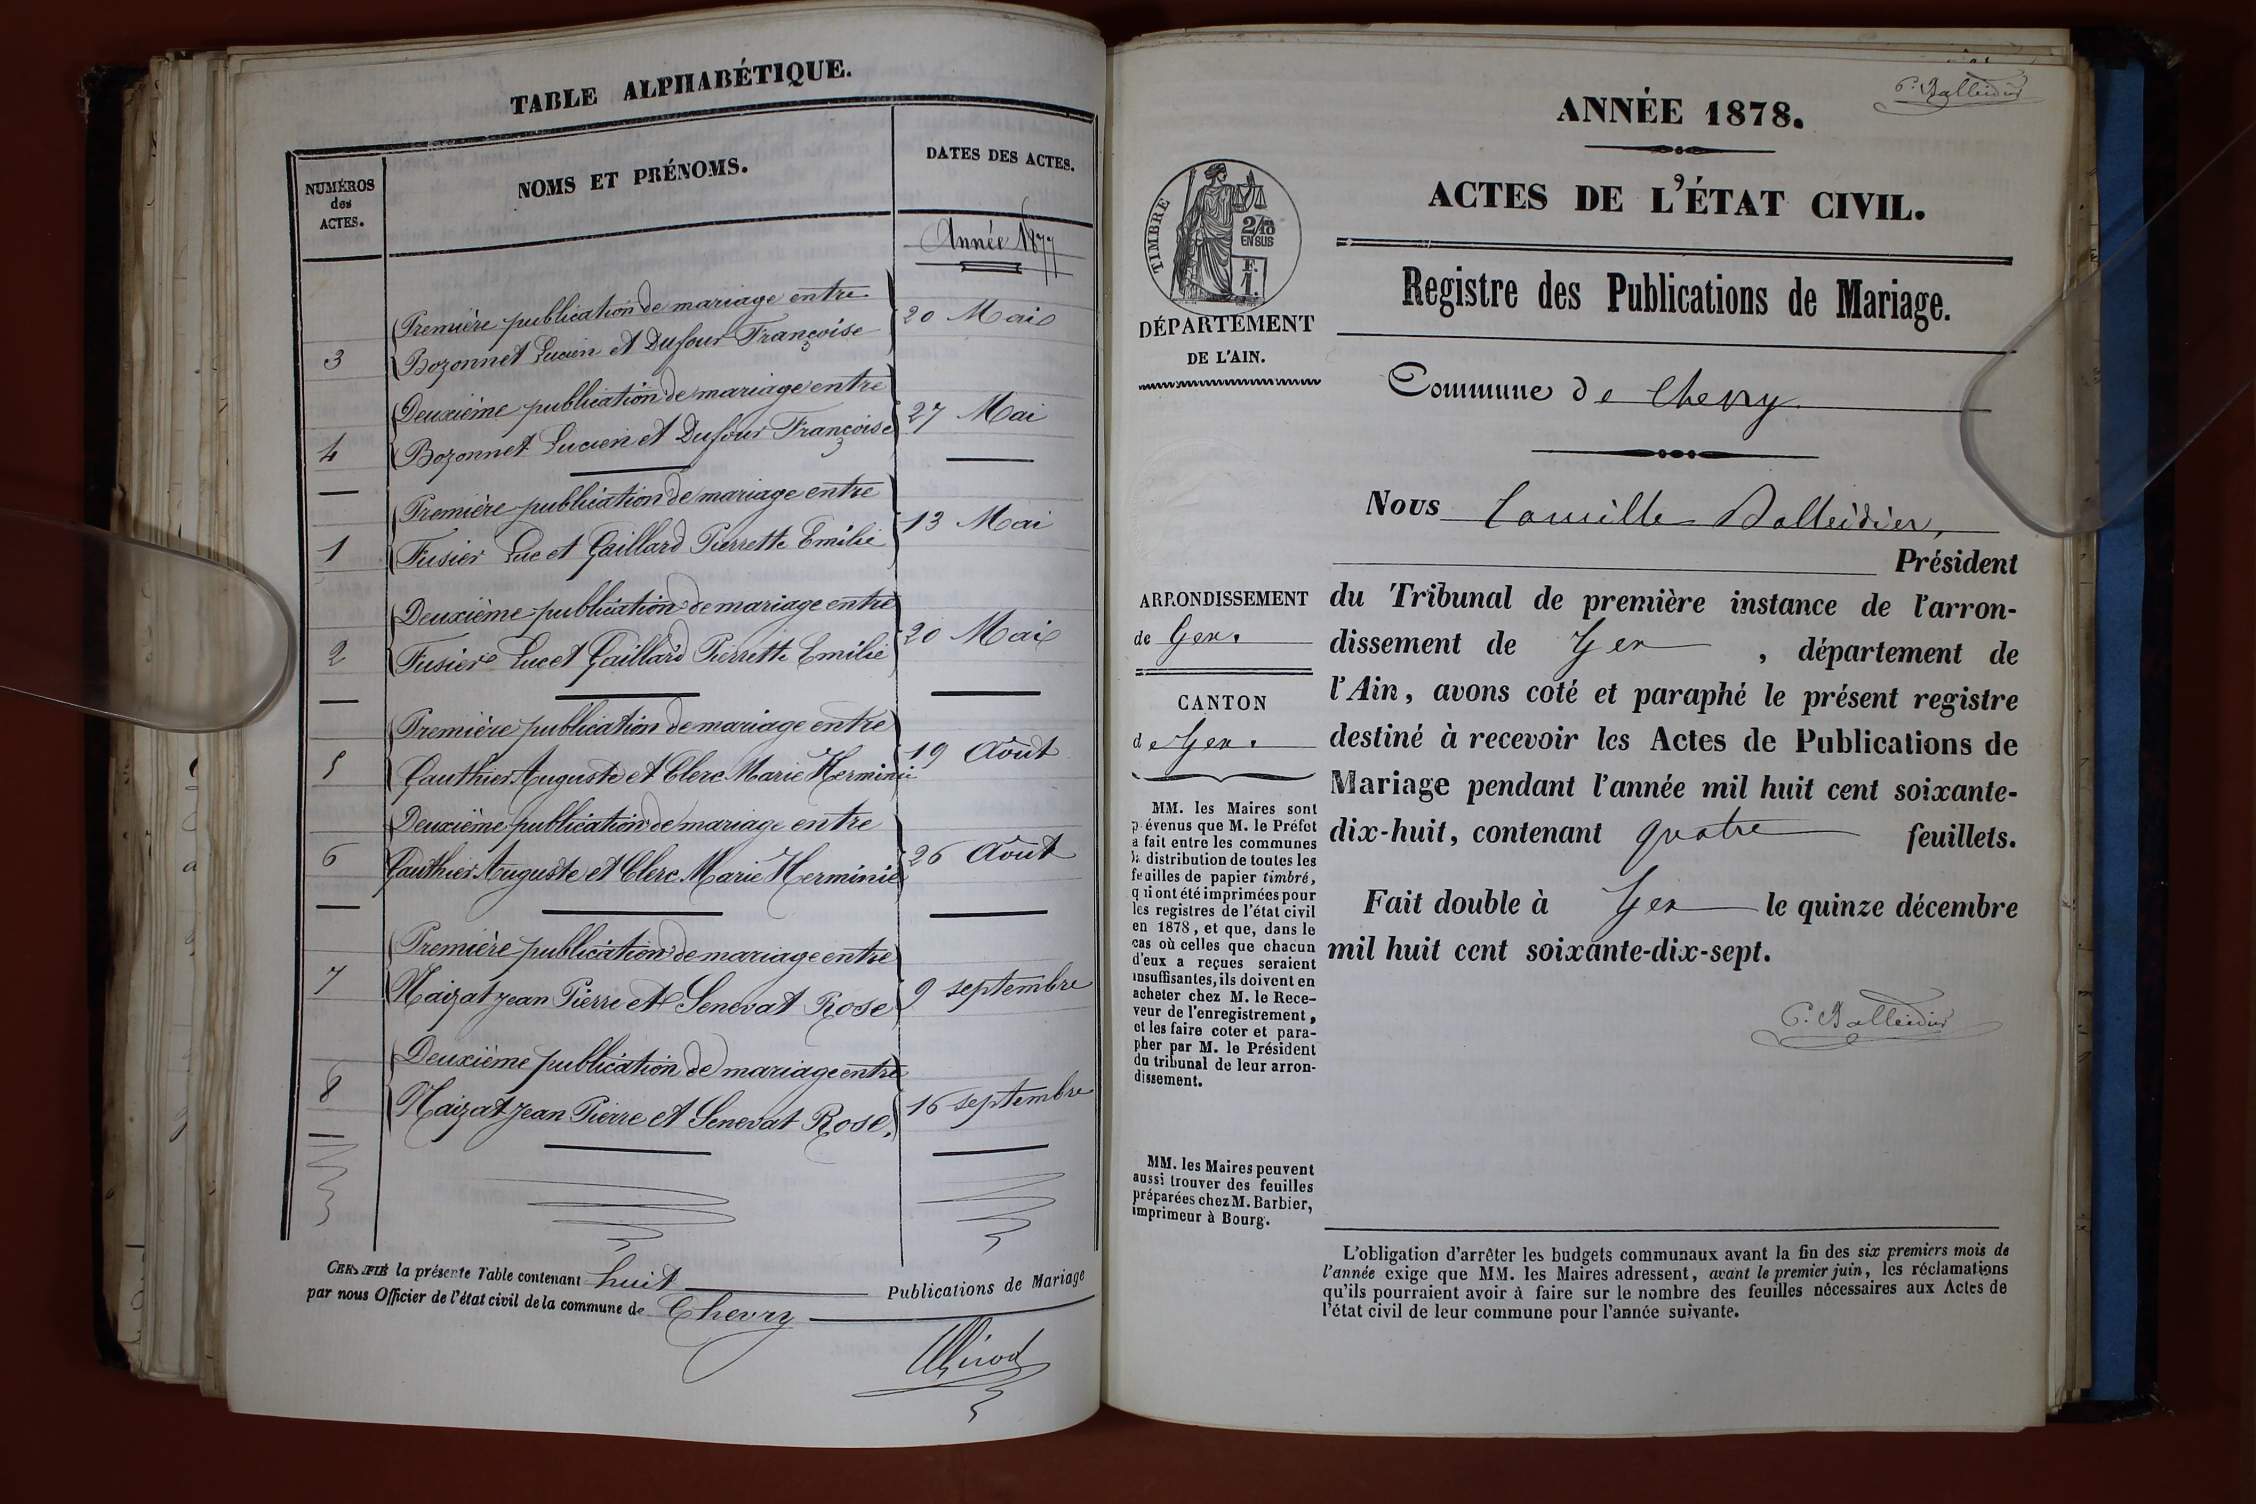 TABLE ALPHABÉTIQUE.
NUMÉROS
des
ACTES.
NOMS ET PRÉNOMS.
DATES DES ACTES.
Année 1877
Première publication de mariage entre
3 Bozonnet Lucien et Dufour Françoise 20 Mai
Deuxième publication de mariage entre
4 Bozonnet Lucien et Dufour Françoise 27 Mai
Première publication de mariage entre
1 Fusier Luc et Gaillard Pierrette Emilie 13 Mai
Deuxième publication de mariage entre
2 Fusier Luc et Gaillard Pierrette Emilie 20 Mai
Première publication de mariage entre
5 Gauthier Auguste et Clerc Marie Herminie 19 Août
Deuxième publication de mariage entre
6 Gauthier Auguste et Clerc Marie Herminie 26 Août
Première publication de mariage entre
7 Maizat Jean Pierre et Senevat Rose 9 septembre
Deuxième publication de mariage entre
8 Maizat Jean Pierre et Senevat Rose. 16 septembre
CERTIFIÉ la présente Table contenant huit Publications de Mariage
par nous Officier de l'état civil de la commune de Chevry
C. Balleidier
ANNÉE 1878.
ACTES DE L'ÉTAT CIVIL.
TIMBRE
2/10
EN SUS
F.
1.
DÉPARTEMENT
DE L'AIN.
Registre des Publications de Mariage.
Commune de Chevry
Nous Camille Balleidier,
Président
du Tribunal de première instance de l'arron-
dissement de Gex, département de
l'Ain, avons coté et paraphé le présent registre
destiné à recevoir les Actes de Publications de
Mariage pendant l'année mil huit cent soixante-
dix-huit, contenant quatre feuillets.
Fait double à Gex le quinze décembre
mil huit cent soixante-dix-sept.
C. Balleidier
ARRONDISSEMENT
de Gex.
CANTON
de Gex.
MM. les Maires sont
prévenus que M. le Préfet
a fait entre les communes
la distribution de toutes les
feuilles de papier timbré,
qui ont été imprimées pour
les registres de l'état civil
en 1878, et que, dans le
cas où celles que chacun
d'eux a reçues seraient
insuffisantes, ils doivent en
acheter chez M. le Rece-
veur de l'enregistrement,
et les faire coter et para-
pher par M. le Président
du tribunal de leur arron-
dissement.
MM. les Maires peuvent
aussi trouver des feuilles
préparées chez M. Barbier,
imprimeur à Bourg.
L'obligation d'arrêter les budgets communaux avant la fin des six premiers mois de
l'année exige que MM. les Maires adressent, avant le premier juin, les réclamations
qu'ils pourraient avoir à faire sur le nombre des feuilles nécessaires aux Actes de
l'état civil de leur commune pour l'année suivante.